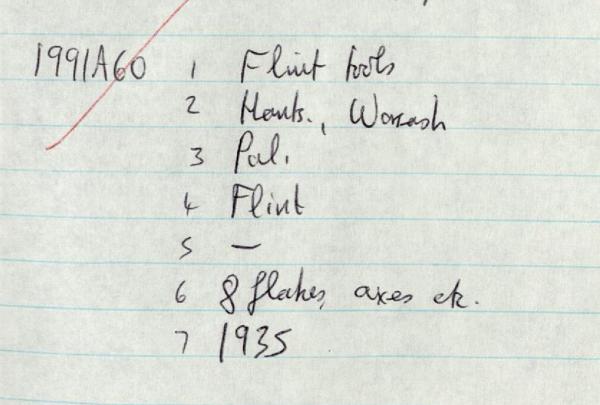 1991A60 1 Flint tools
2 Hants., Warsash
3 Pal.
4 Flint
5 —
6 8 flakes, axes etc.
7 1935